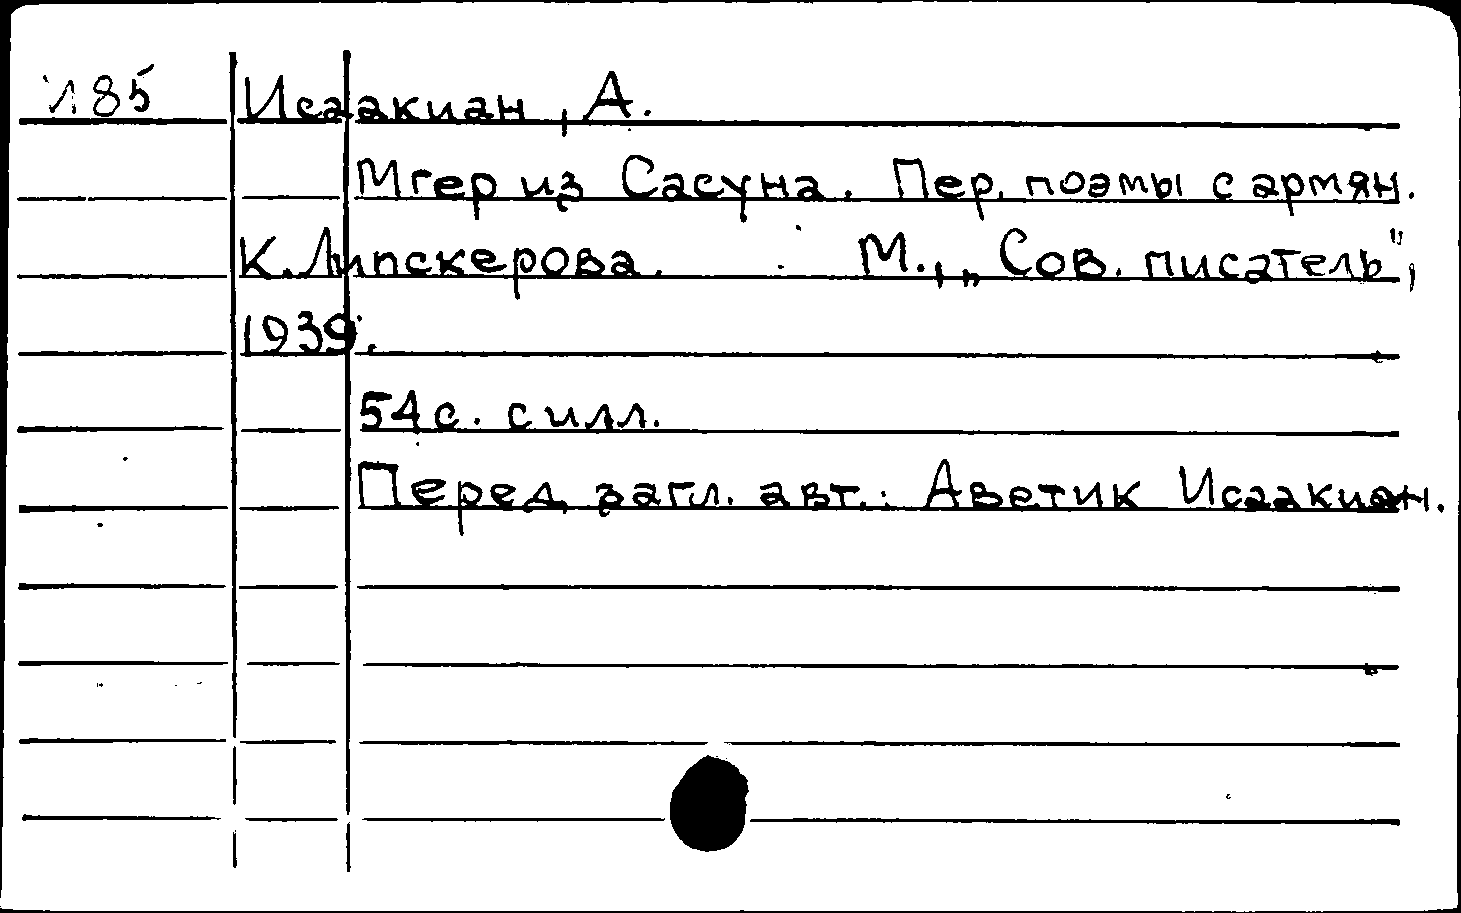 И85 Исаакиан, А.
Мгер из Сасуна. Пер. поэмы с армян.
К. Липскерова. М., „Сов. писатель",
1939.
54 с. с илл.
Перед загл. авт.: Аветик Исаакиан.